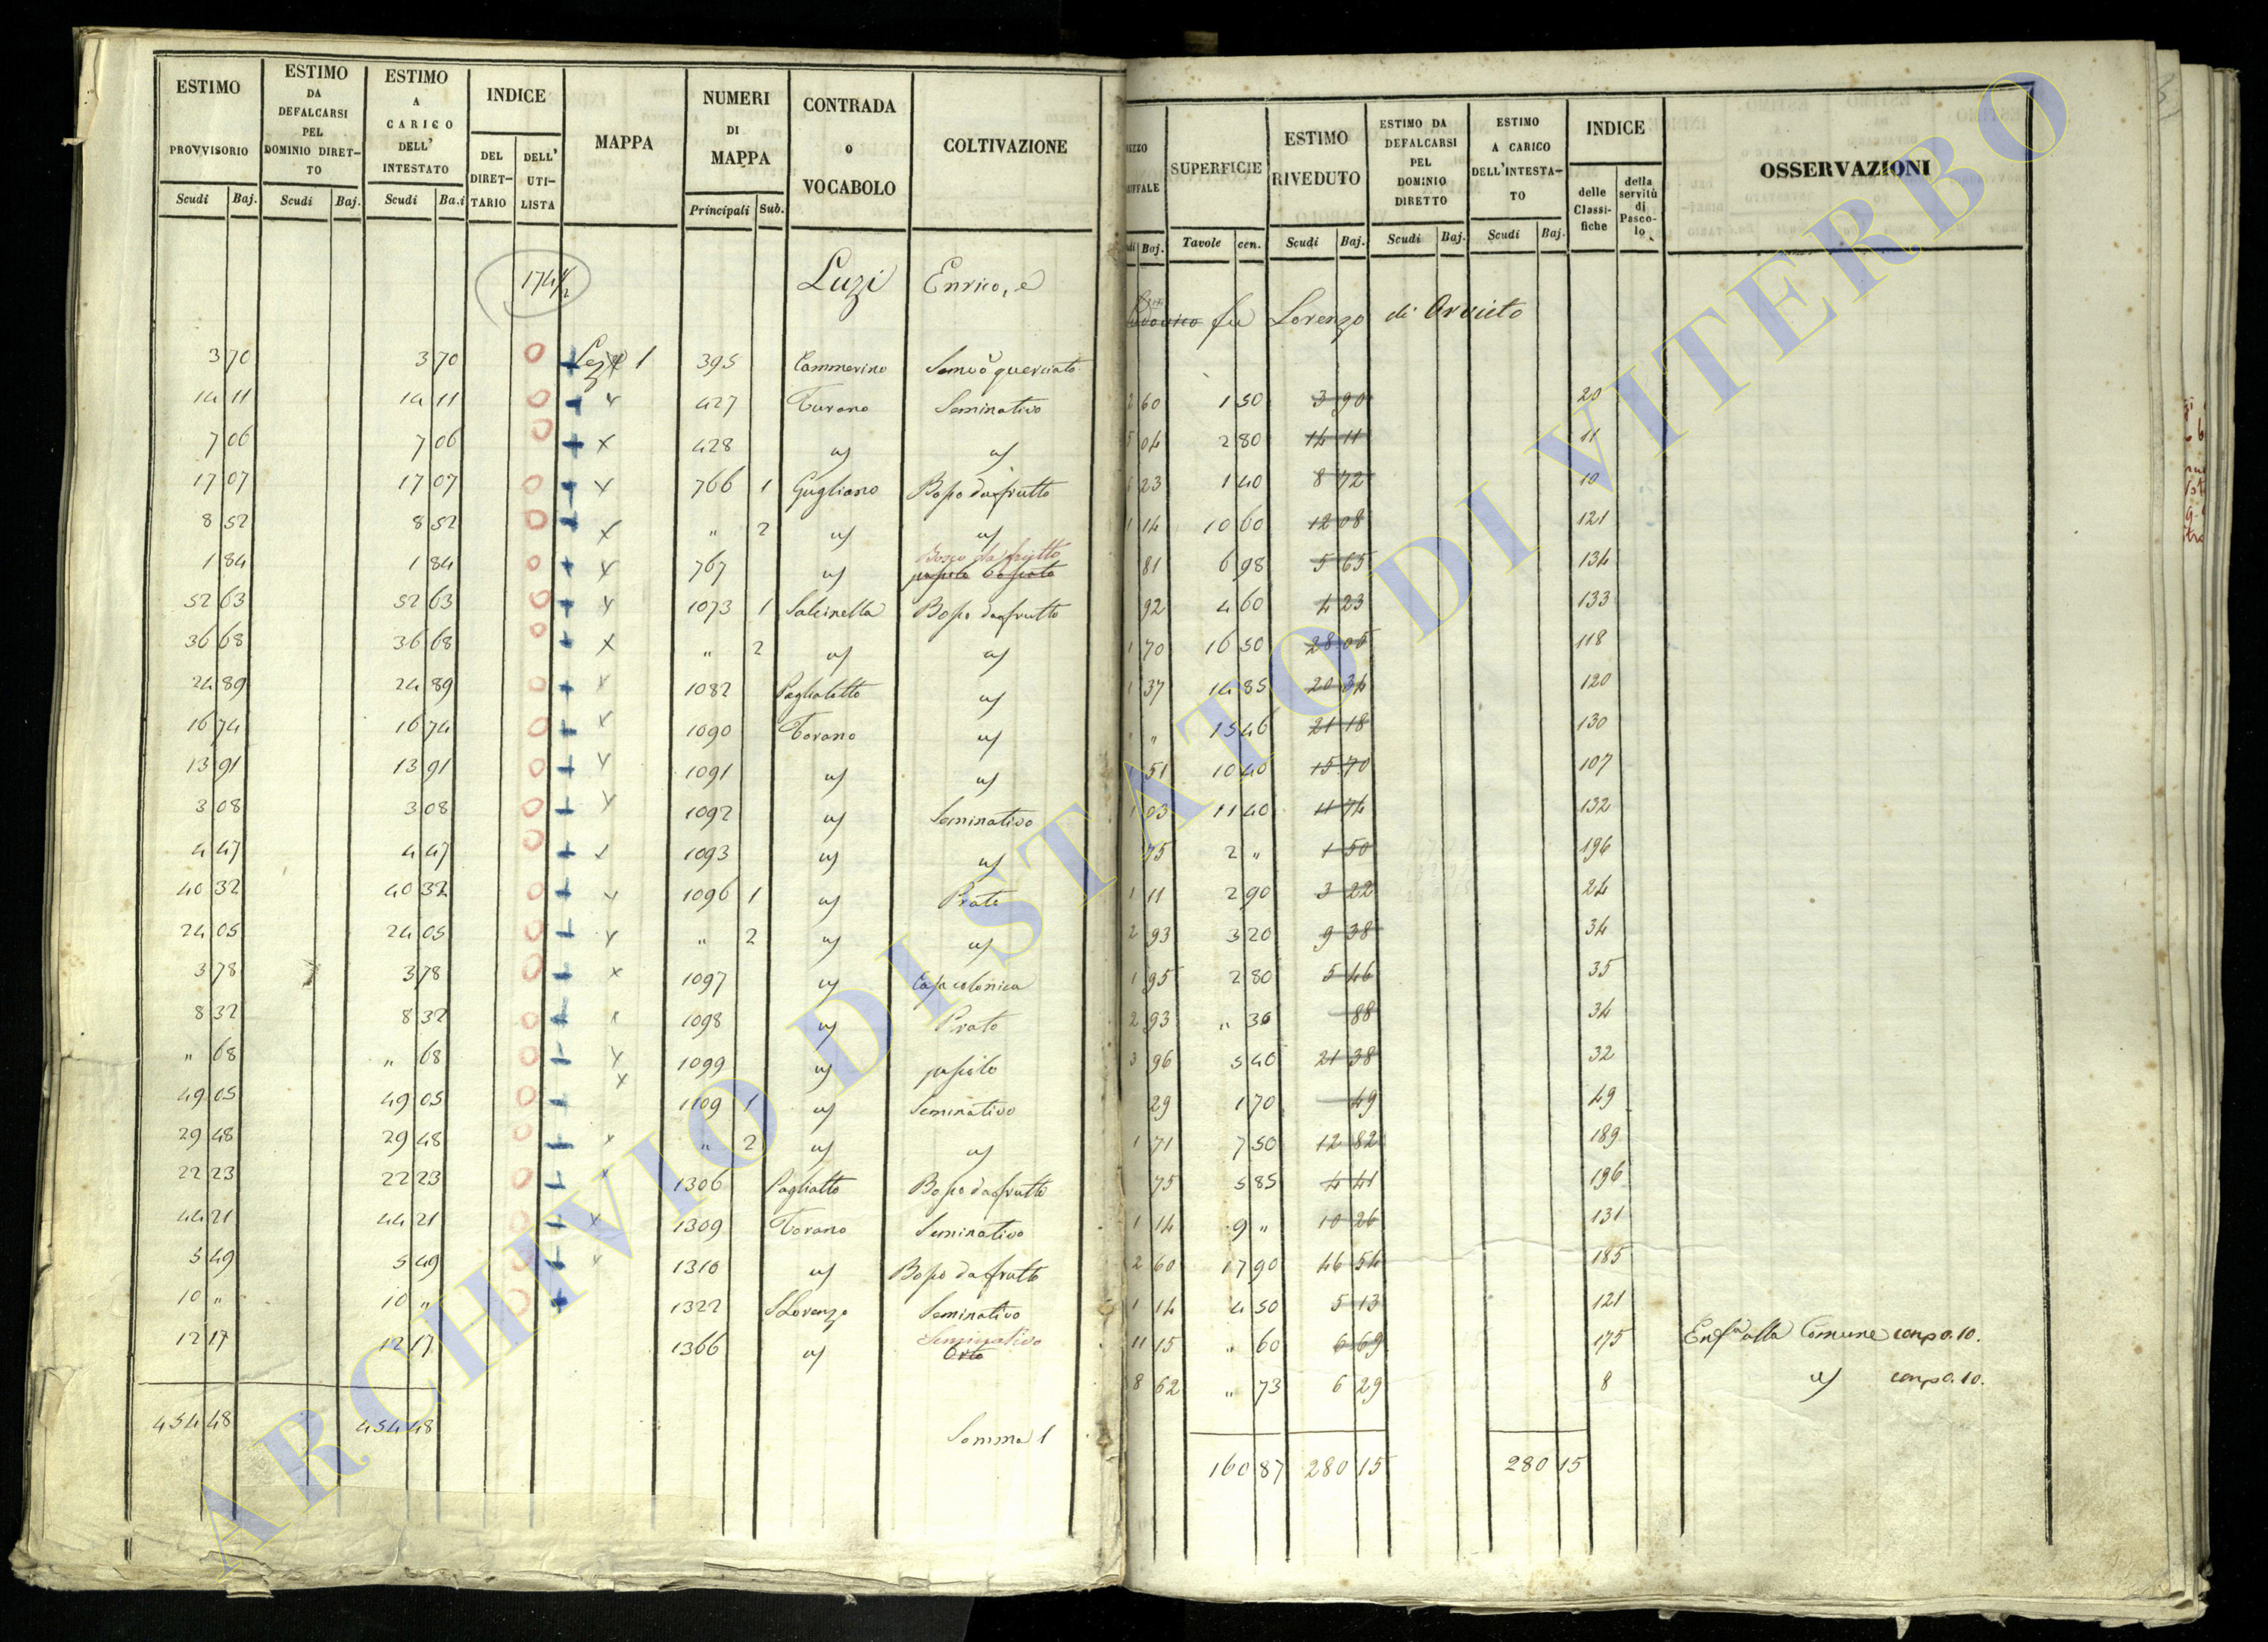 ESTIMO PROVVISORIO Scudi Baj.
ESTIMO DA DEFALCARSI PEL DOMINIO DIRET-TO Scudi Baj.
ESTIMO A CARICO DELL' INTESTATO Scudi Ba.i
INDICE DEL DIRET-TARIO DELL' UTI-LISTA
MAPPA
NUMERI DI MAPPA Principali Sub.
CONTRADA o VOCABOLO
COLTIVAZIONE
SUPERFICIE Tavole cen.
ESTIMO RIVEDUTO Scudi Baj.
ESTIMO DA DEFALCARSI PEL DOMINIO DIRETTO Scudi Baj.
ESTIMO A CARICO DELL'INTESTA-TO Scudi Baj.
INDICE delle Classi-fiche della servitù di Pasco-lo
OSSERVAZIONI
174 1/2 Luzi Enrico, e
fu Lorenzo di Orvieto
3 70 3 70 1 395 Cammerino
14 11 14 11 427 Turano Seminativo
7 06 7 06 428
17 07 17 07 766 1 Gugliano Bosso da frutto
8 52 8 52 " 2
1 84 1 84 767 Bosco da frutto
52 63 52 63 1073 1 Salcinella Bosso da frutto
36 68 36 68 " 2
24 89 24 89 1082
16 74 16 74 1090 Torano
13 91 13 91 1091
3 08 3 08 1092 Seminativo
4 47 4 47 1093
40 32 40 32 1096 1 Prato
24 05 24 05 " 2
3 78 3 78 1097 Casa colonica
8 32 8 32 1098 Prato
" 68 " 68 1099
49 05 49 05 1109 1 Seminativo
29 48 29 48 " 2
22 23 22 23 1306 Pagliatto Bosso da frutto
44 21 44 21 1309 Torano Seminativo
5 49 5 49 1310 Bosso da frutto
10 " 10 " 1322 S Lorenzo Seminativo
12 17 12 17 1366 Seminativo Orto
454 48 454 48 Somma 1
2 60 1 50 3 90 20
5 04 2 80 14 11 11
6 23 1 40 8 72 10
1 14 10 60 12 08 121
81 6 98 5 65 134
92 4 60 4 23 133
1 70 16 50 28 05 118
1 37 14 85 20 34 120
" " 15 46 21 18 130
51 10 40 15 70 107
1 03 11 40 11 74 132
75 2 " 1 50 196
1 11 2 90 3 22 24
2 93 3 20 9 38 34
1 95 2 80 5 46 35
2 93 " 30 88 34
3 96 5 40 21 38 32
29 1 70 49 49
1 71 7 50 12 82 189
75 5 85 4 41 196
1 14 9 " 10 26 131
2 60 17 90 46 54 185
1 14 4 50 5 13 121
11 15 " 60 6 69 175 alla Comune
8 62 " 73 6 29 8
160 87 280 15 280 15
ARCHIVIO DI STATO DI VITERBO